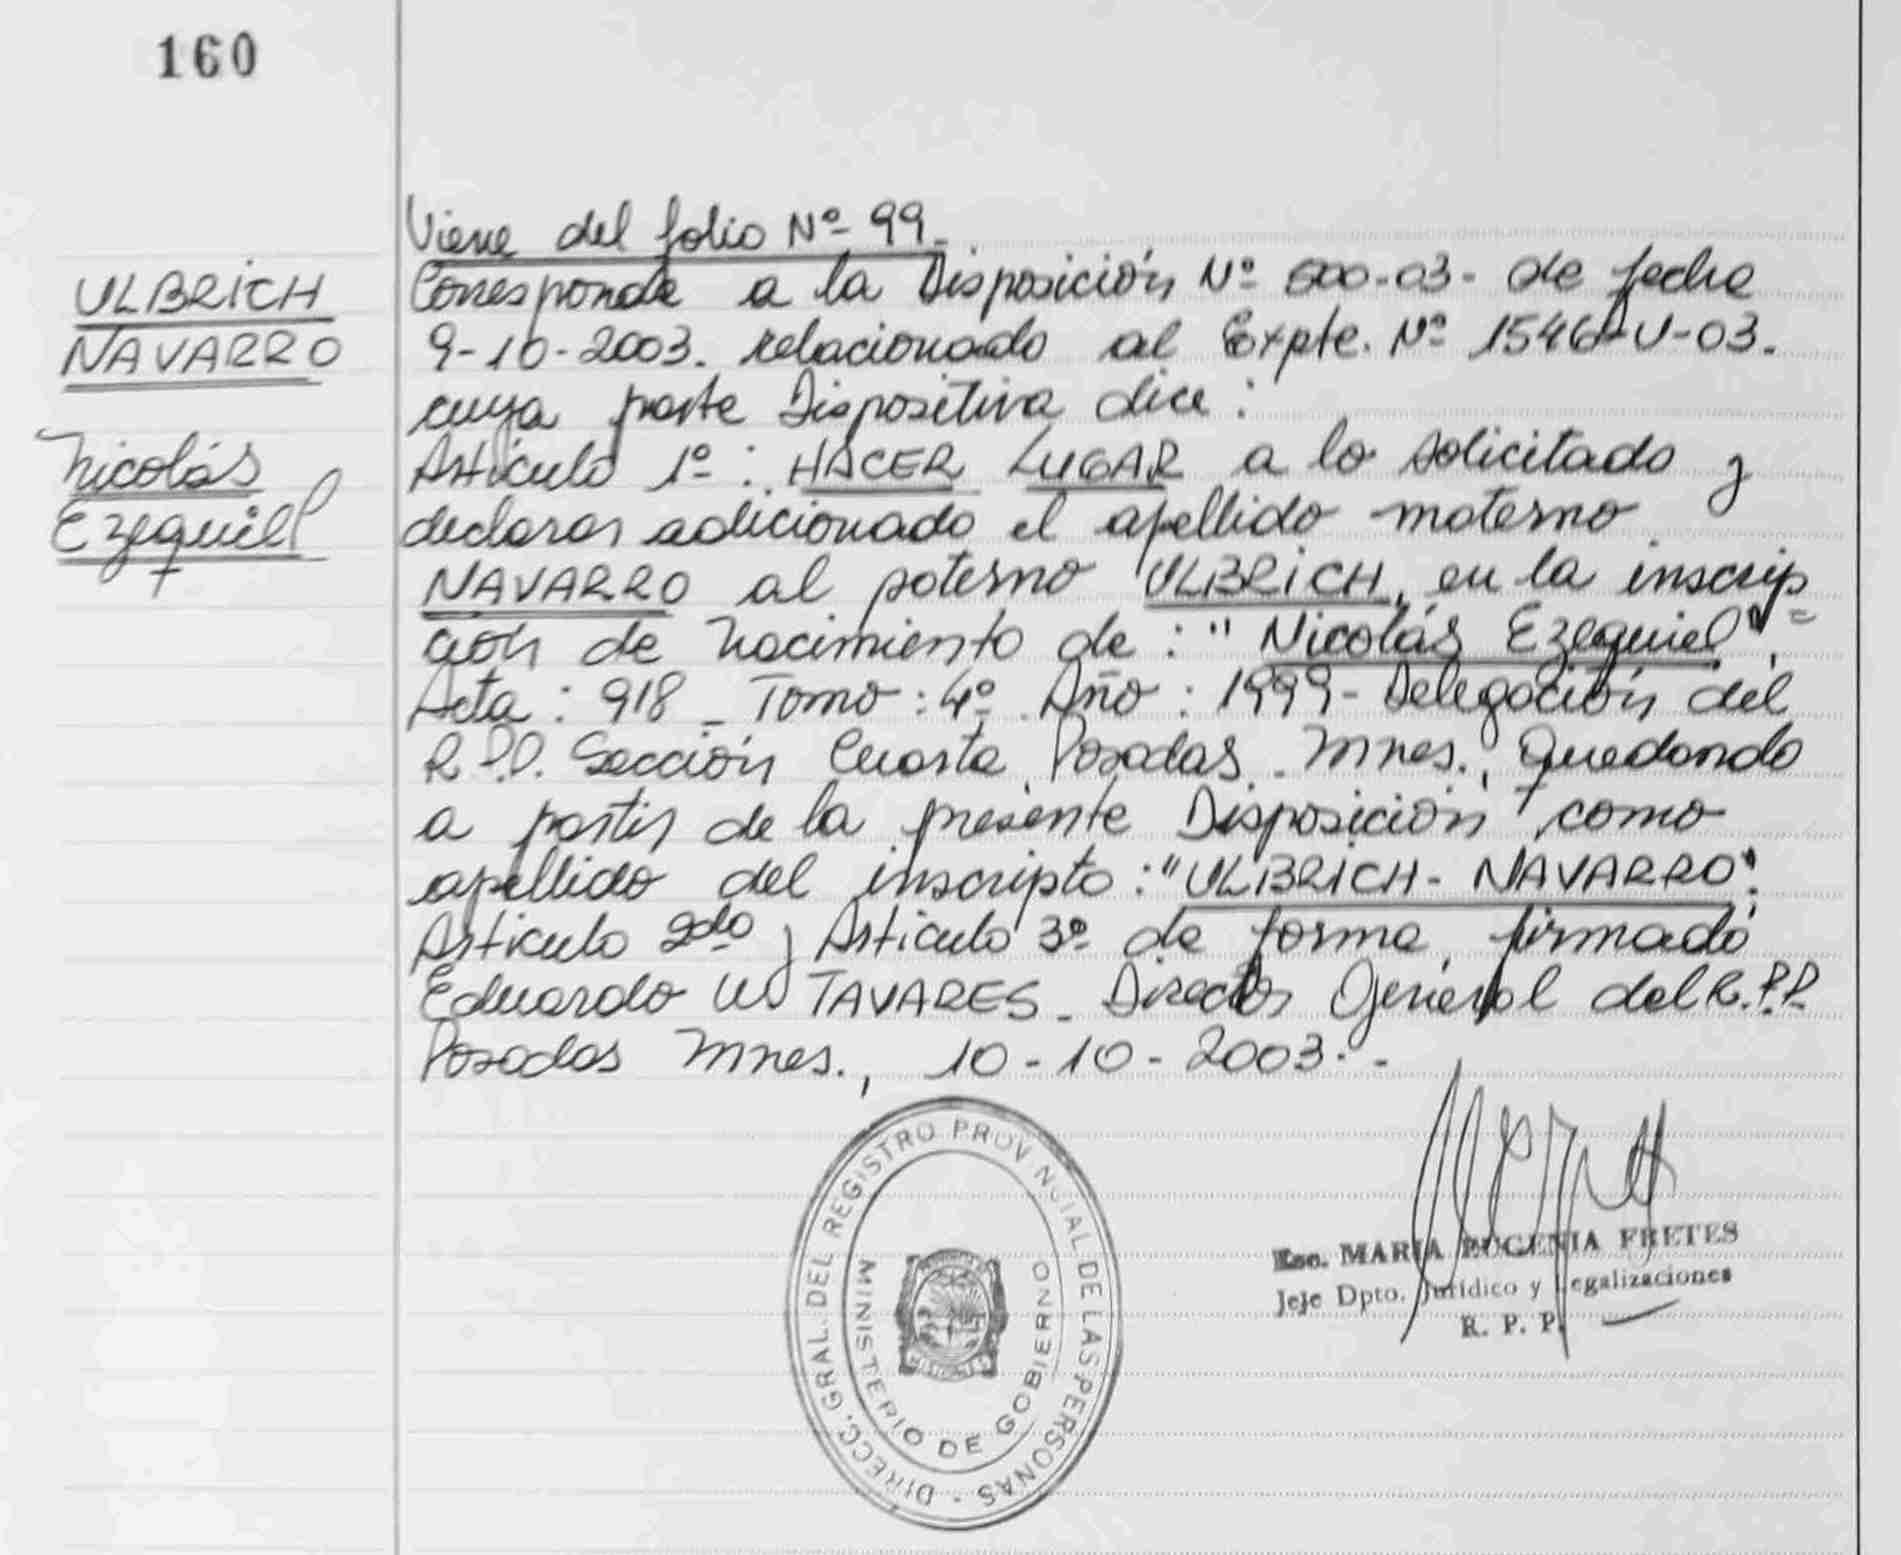 160
ULBRICH
NAVARRO
Nicolás
Ezequiel
Viene del folio Nº 99_
Corresponde a la Disposición Nº 600-03- de fecha
9-10-2003. relacionado al Expte. Nº 1546-U-03.
cuya parte Dispositiva dice:
Artículo 1º: HACER LUGAR a lo solicitado y
declarar adicionado el apellido materno
NAVARRO al paterno ULBRICH, en la inscrip
ción de nacimiento de: "Nicolás Ezequiel",
Acta: 918 _ Tomo: 4º. Año: 1999- Delegación del
R.P.P. Sección Cuarta Posadas. Mnes., Quedando
a partir de la presente Disposición como
apellido del inscripto: "ULBRICH- NAVARRO".
Artículo 2do y Artículo 3º de forma, firmado
Eduardo W TAVARES_ Director General del R.P.P.
Posadas Mnes., 10-10-2003.-
DIRECC. GRAL. DEL REGISTRO PROVINCIAL DE LAS PERSONAS -
MINISTERIO DE GOBIERNO
MISIONES
Esc. MARIA EUGENIA FRETES
Jefe Dpto. Jurídico y Legalizaciones
R. P. P.